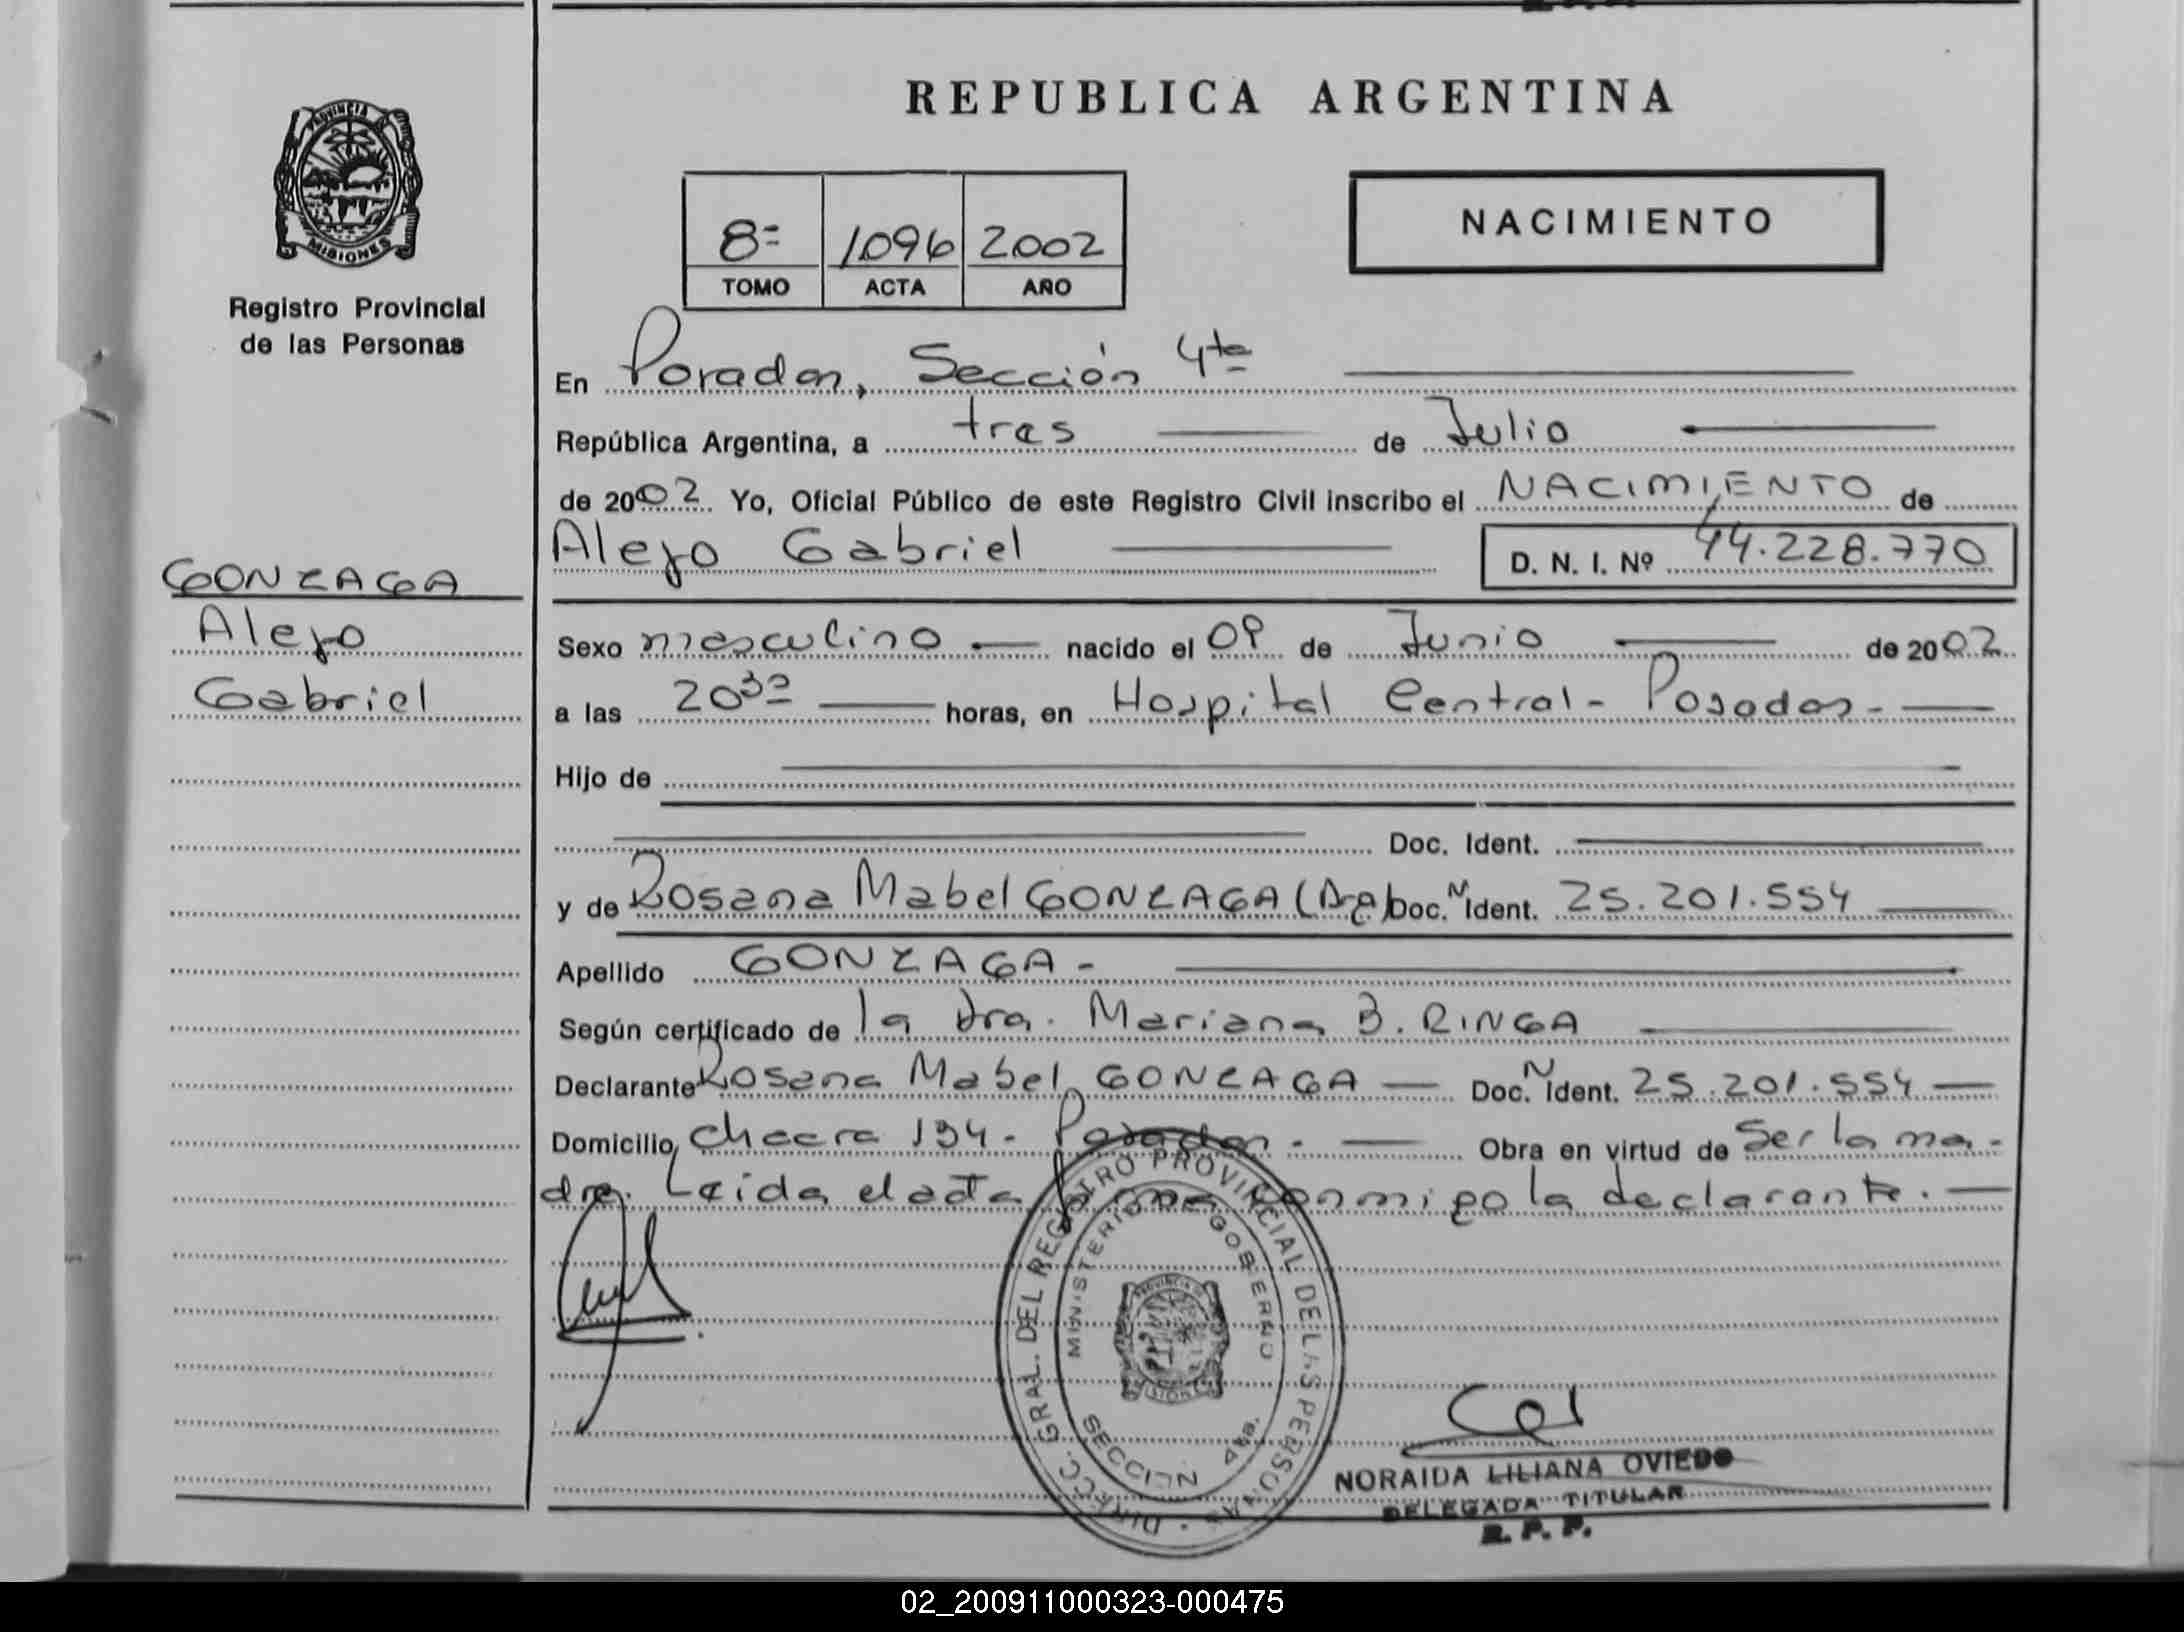 PROVINCIA
MISIONES
Registro Provincial
de las Personas
GONZAGA
Alejo
Gabriel
REPUBLICA ARGENTINA
8º 1096 2002
TOMO ACTA AÑO
NACIMIENTO
En Posadas, Sección 4ta
República Argentina, a tres de Julio
de 2002 Yo, Oficial Público de este Registro Civil inscribo el NACIMIENTO de
Alejo Gabriel D. N. I. Nº 44.228.770
Sexo masculino nacido el 09 de Junio de 2002
a las 20³⁰ horas, en Hospital Central - Posadas -
Hijo de
Doc. Ident.
y de Rosana Mabel GONZAGA (Arg) Doc. N Ident. 25.201.554
Apellido GONZAGA -
Según certificado de la Dra. Mariana B. RINGA
Declarante Rosana Mabel GONZAGA Doc. N Ident. 25.201.554
Domicilio Chacra 134 - Posadas. Obra en virtud de Ser la ma-
dre. Leida el acta firma conmigo la declarante.
DIRECC. GRAL. DEL REGISTRO PROVINCIAL DE LAS PERSONAS
MINISTERIO DE GOBIERNO
SECCION 4ta.
NORAIDA LILIANA OVIEDO
DELEGADA TITULAR
R. P. P.
02_200911000323-000475